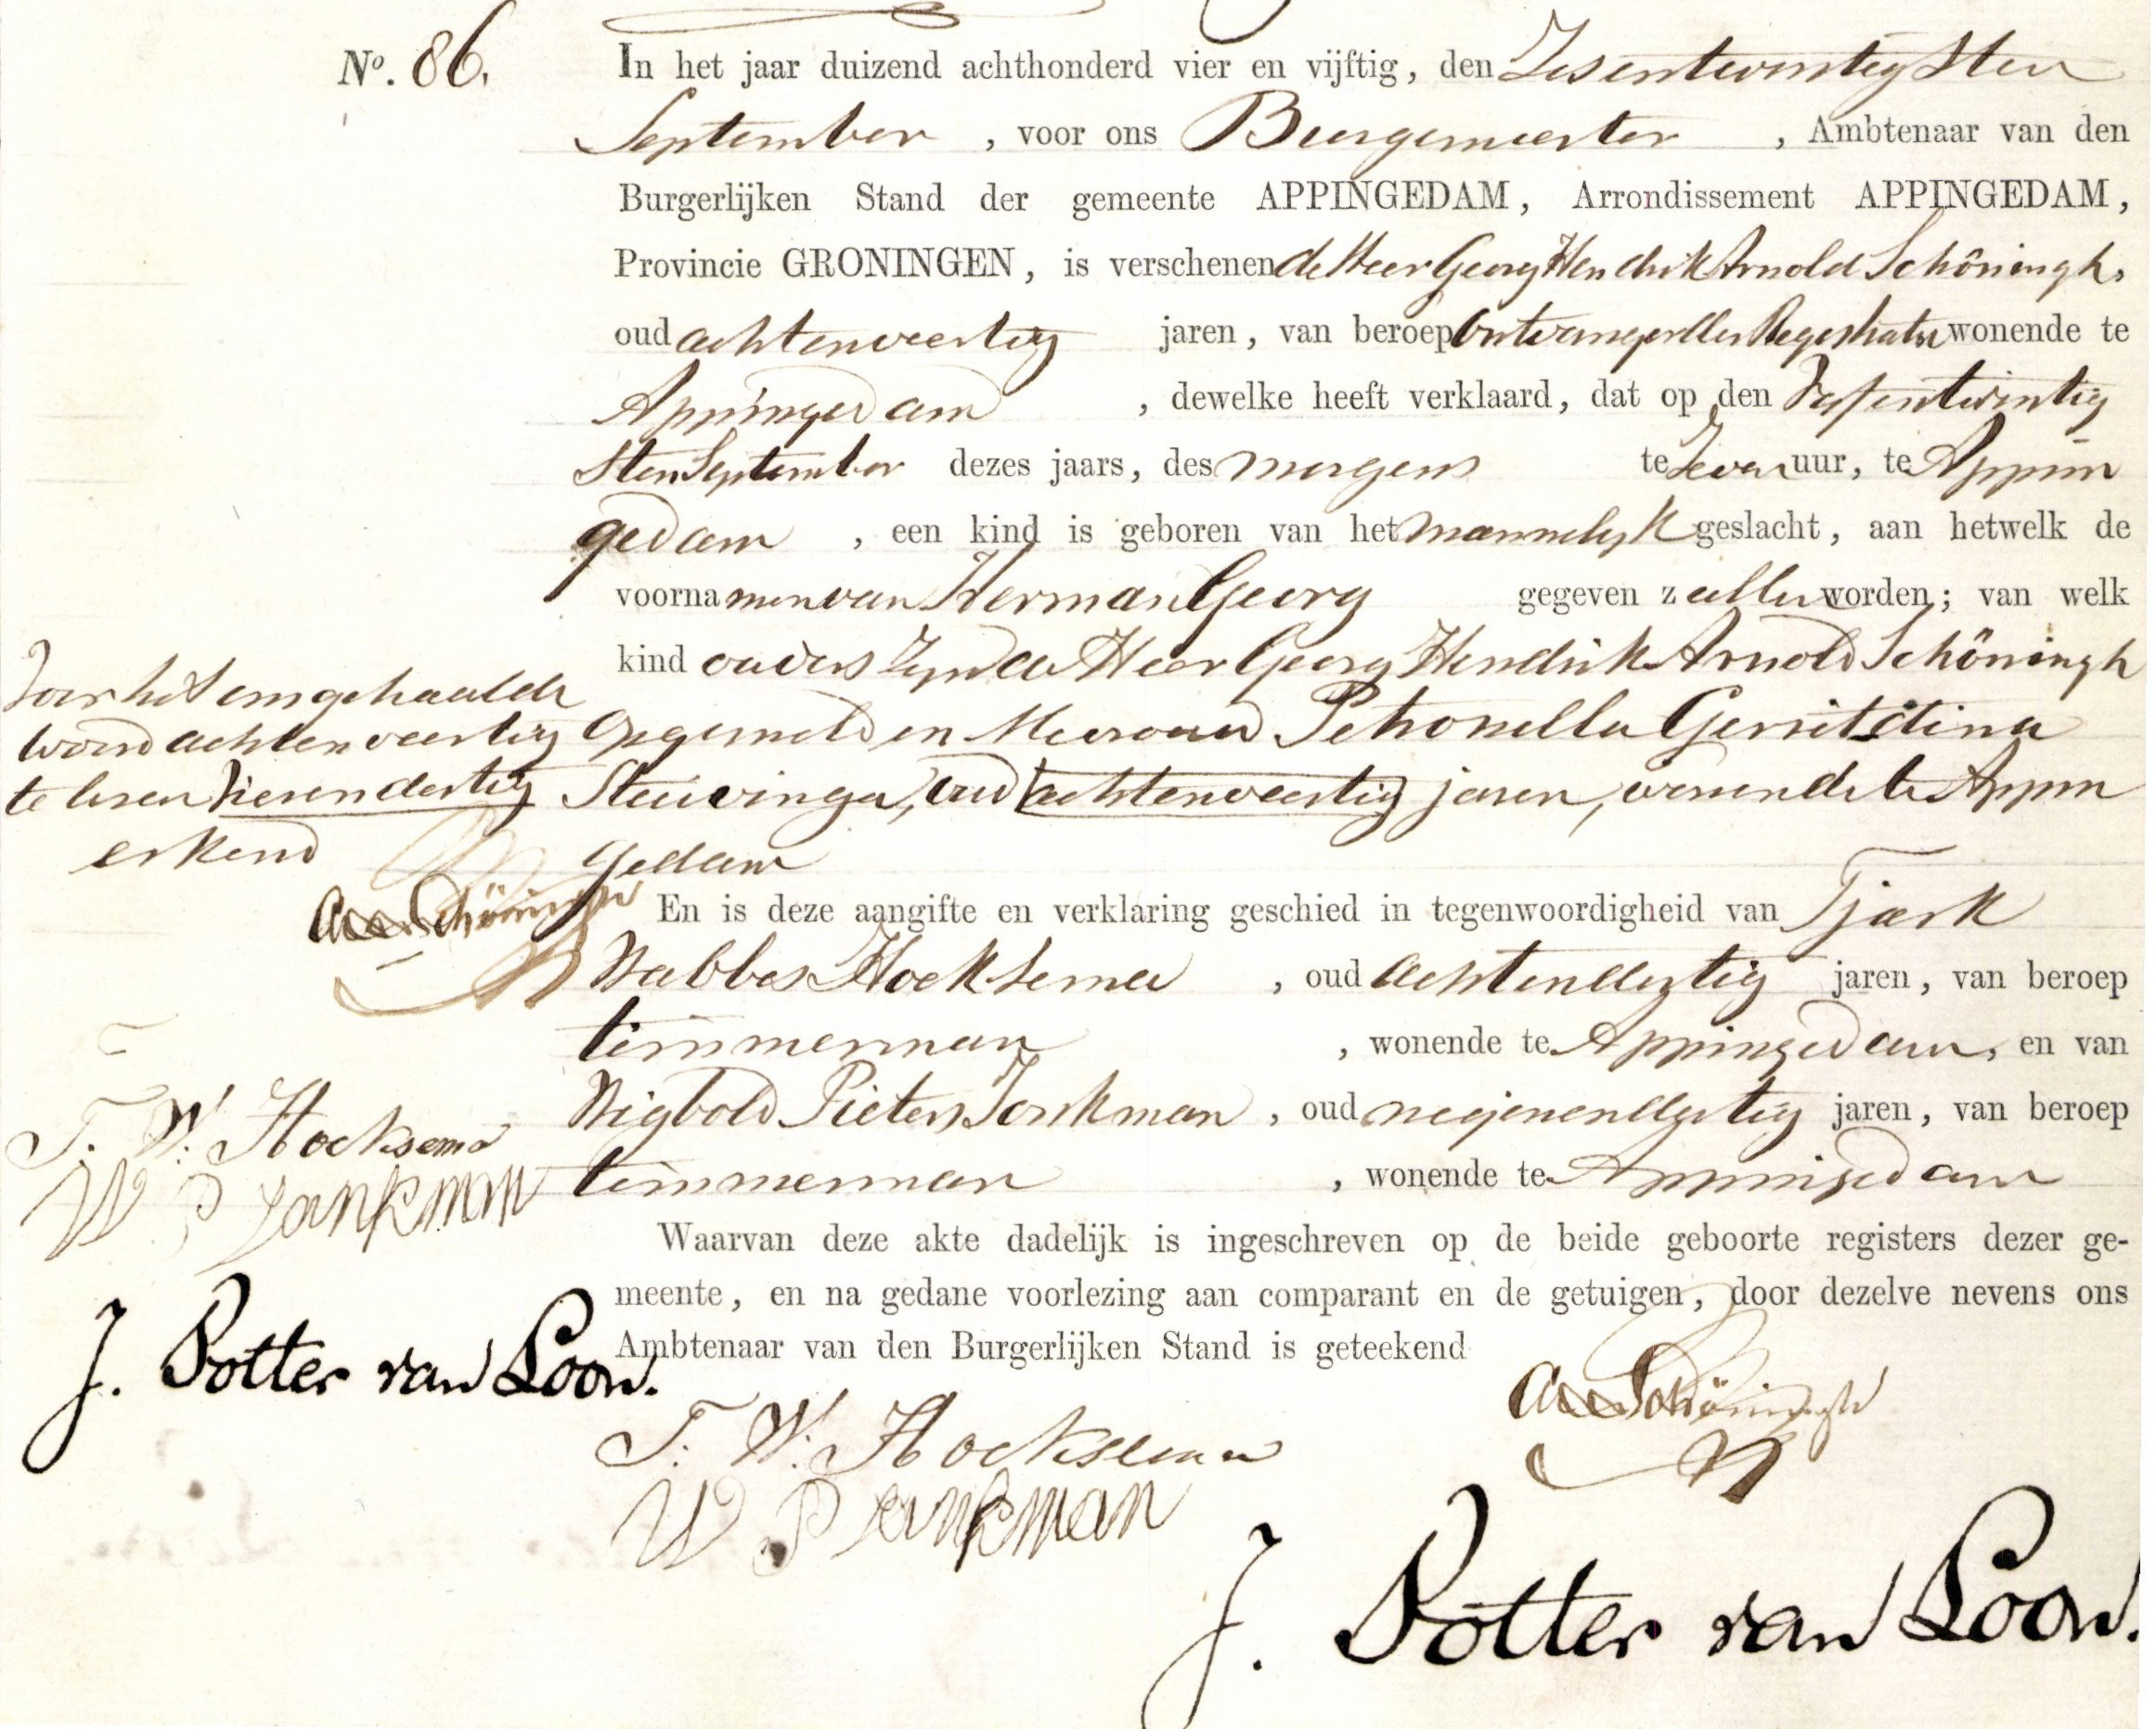 No. 86.
In het jaar duizend achthonderd vier en vijftig, den Zesentwintigsten
September , voor ons Burgemeester , Ambtenaar van den
Burgerlijken Stand der gemeente APPINGEDAM, Arrondissement APPINGEDAM,
Provincie GRONINGEN, is verschenen de Heer Georg Hendrik Arnold Schöningh,
oud achtenveertig jaren, van beroep Ontvanger der Registratie wonende te
Appingedam , dewelke heeft verklaard, dat op den Vijfentwintig
sten September dezes jaars, des morgens te Zeven uur, te Appin
gedam , een kind is geboren van het mannelijk geslacht, aan hetwelk de
voornamen van Herman Georg gegeven zullen worden; van welk
kind ouders zijn de Heer Georg Hendrik Arnold Schöningh
opgemeld en Mevrouw Petronella Gerritdina
Stuivinga, oud achtenveertig jaren, wonende te Appin
gedam
Voor het omgehaalde
woord achtenveertig
te lezen vierendertig
erkend
Schöningh
En is deze aangifte en verklaring geschied in tegenwoordigheid van Tjark
Wabbes Hoeksema , oud achtendertig jaren, van beroep
timmerman , wonende te Appingedam, en van
Wigbold Pieters Jonkman , oud negenendertig jaren, van beroep
timmerman , wonende te Appingedam
T. W. Hoeksema
W P Jonkman
J. Potter van Loon.
Waarvan deze akte dadelijk is ingeschreven op de beide geboorte registers dezer ge-
meente, en na gedane voorlezing aan comparant en de getuigen, door dezelve nevens ons
Ambtenaar van den Burgerlijken Stand is geteekend
Schöningh
T. W. Hoeksema
W P Jonkman
J. Potter van Loon.